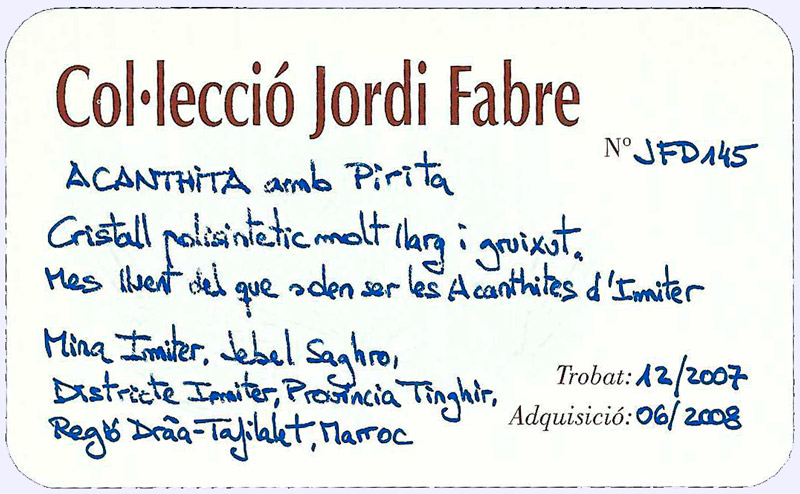 Col·lecció Jordi Fabre
Nº JFD145
ACANTHITA amb Pirita
Cristall polisintetic molt llarg i gruixut.
Mes lluent del que solen ser les Acanthites d'Imiter
Mina Imiter, Jebel Saghro,
Districte Imiter, Província Tinghir,
Regió Drâa-Tafilalet, Marroc
Trobat: 12/2007
Adquisició: 06/2008